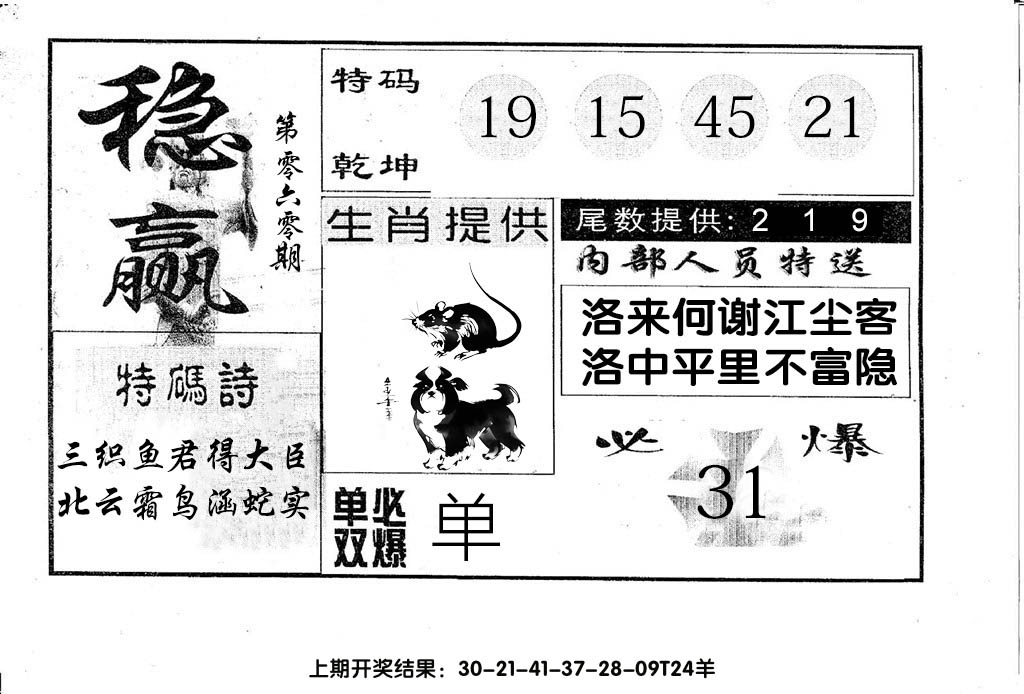 稳赢
第零六零期
特码
乾坤
19 15 45 21
生肖提供
尾数提供: 2 1 9
内部人员特送
洛来何谢江尘客
洛中平里不富隐
特碼詩
三织鱼君得大臣
北云霜鸟涵蛇实
必爆
31
单双
必爆
单
上期开奖结果：30-21-41-37-28-09T24羊